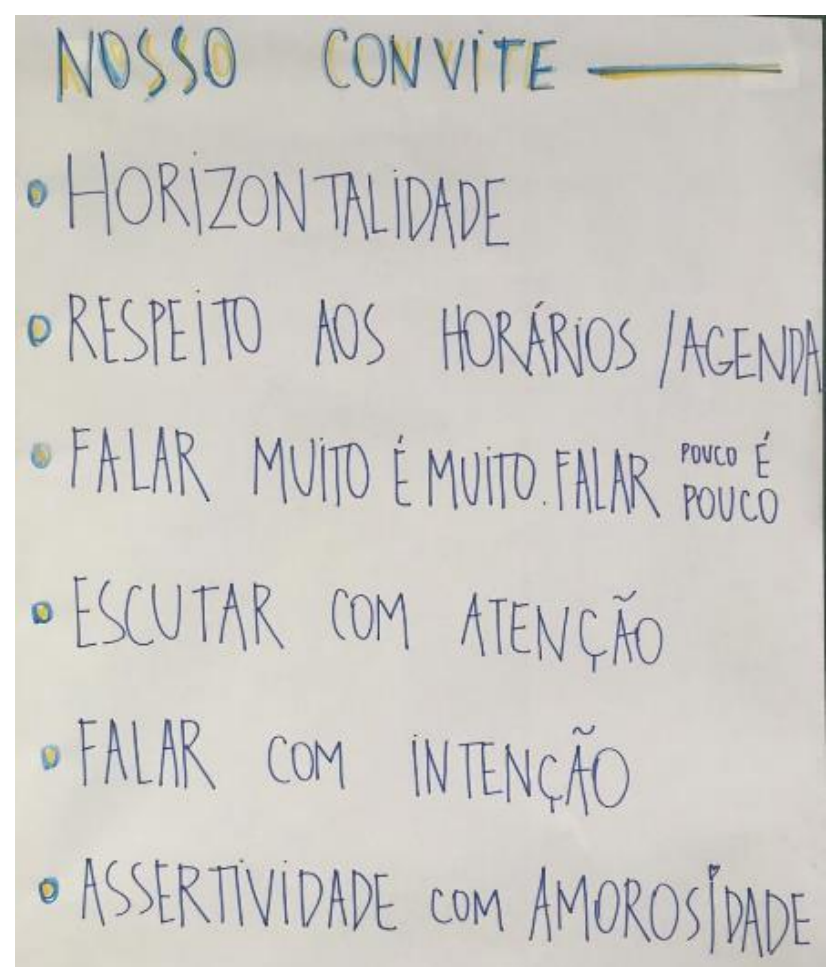 NOSSO CONVITE
• HORIZONTALIDADE
• RESPEITO AOS HORÁRIOS /AGENDA
• FALAR MUITO É MUITO. FALAR POUCO É
POUCO
• ESCUTAR COM ATENÇÃO
• FALAR COM INTENÇÃO
• ASSERTIVIDADE COM AMOROSIDADE